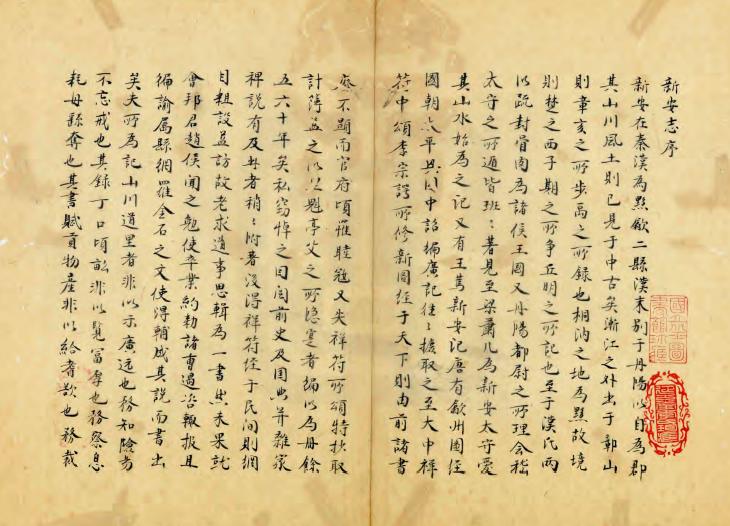 新安志序
新安在秦漢為黟歙二縣漢末別于丹陽以自為郡
其山川風土則已見于中古矣漸江之外出于鄣山
則章亥之所步禹之所錄也桐汭之地為黟故境
則楚之西子期之所爭丘明之所記也至于漢氏兩
以疏封骨肉為諸侯王國又丹陽都尉之所理會稽
太守之所遁皆班班著見至梁蕭几為新安太守愛
其山水始為之記又有王篤新安記唐有歙州圖經
國朝太平興國中詔編廣記往往摭取之至大中祥
符中頒李宗諤所修新圖經于天下則由前諸書
廢不顯而官府頃罹睦寇又失祥符所頒特抄取
計簿益之以里魁亭父之所隱實者編以為冊餘
五六十年矣私竊悼之因閱前史及國典并雜家
稗說有及此者稍稍附著後得祥符經于民間則綱
目粗設益訪故老求遺事思輯為一書然未果就
會邦君趙侯聞之勉使卒業約勅諸曹遇咨輒報且
徧諭屬縣網羅金石之文使得輔成其說而書出
矣夫所為記山川道里者非以示廣遠也務知險易
不忘戒也其錄丁口頃畝非以覽富厚也務察息
耗毋繇奪也其書賦貢物產非以給嗜欲也務裁